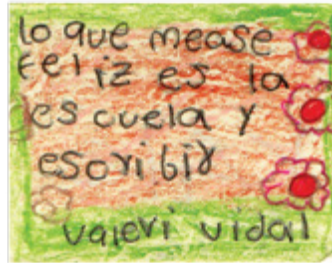 lo que mease
feliz es la
escuela y
escribir
valeri vidal